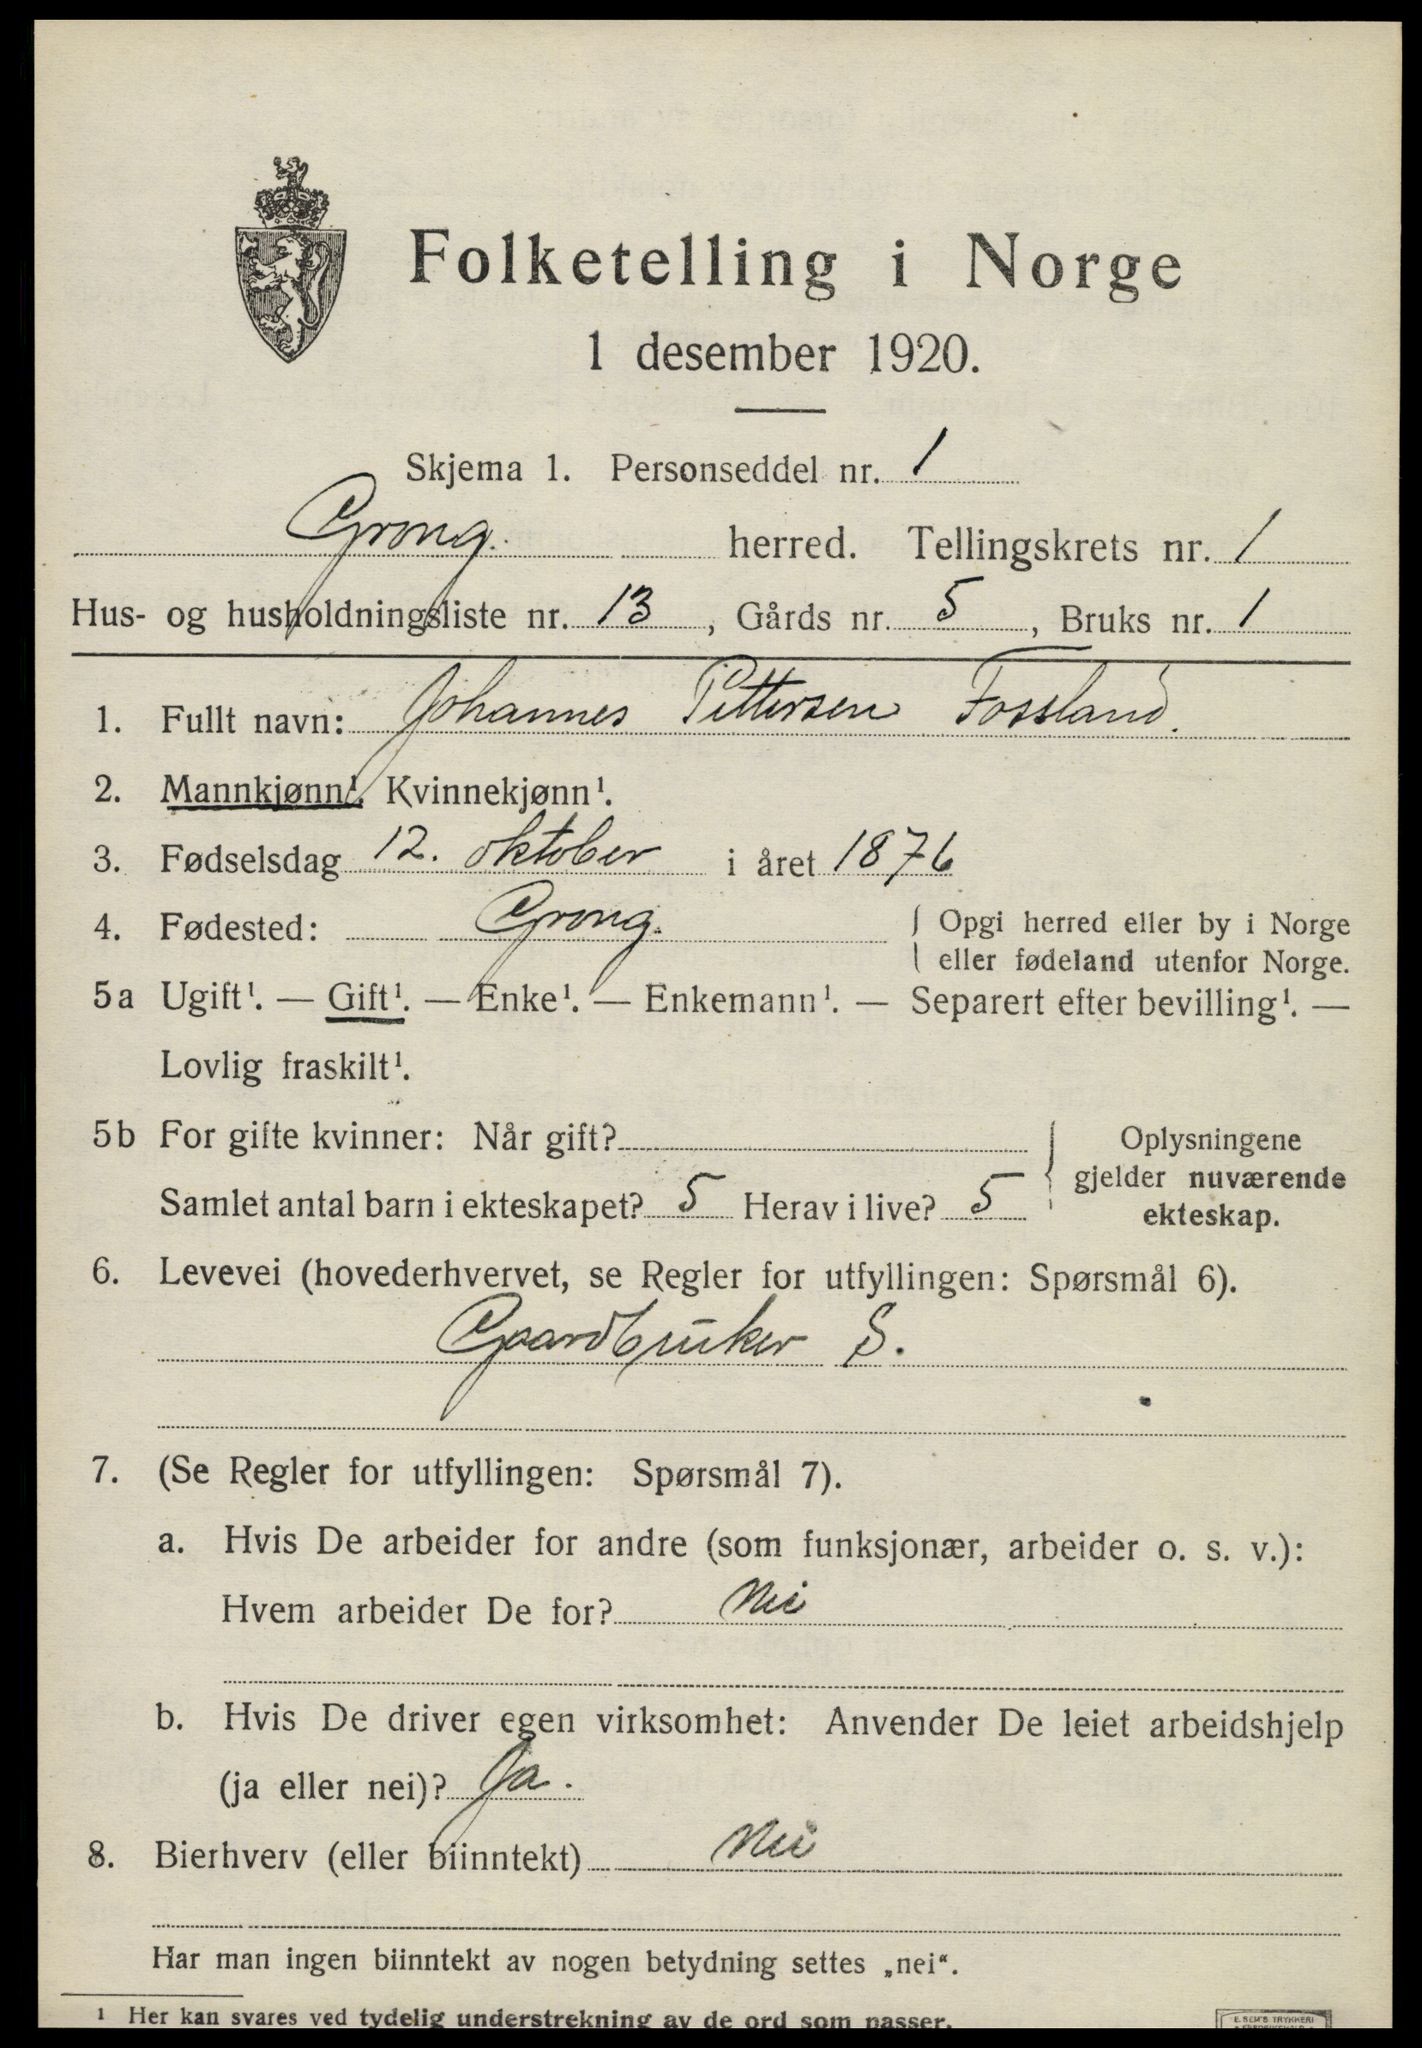 Folketelling i Norge
1 desember 1920.
Skjema 1. Personseddel nr. 1
Grong. herred. Tellingskrets nr. 1
Hus- og husholdningsliste nr. 13, Gårds nr. 5, Bruks nr. 1
1. Fullt navn: Johannes Pettersen Fossland.
2. Mannkjønn¹. Kvinnekjønn¹.
3. Fødselsdag 12. oktober i året 1876
4. Fødested: Grong. { Opgi herred eller by i Norge
eller fødeland utenfor Norge.
5a Ugift¹. — Gift¹. — Enke¹. — Enkemann¹. — Separert efter bevilling¹. —
Lovlig fraskilt¹.
5b For gifte kvinner: Når gift?
Samlet antal barn i ekteskapet? 5 Herav i live? 5
{ Oplysningene
gjelder nuværende
ekteskap.
6. Levevei (hovederhvervet, se Regler for utfyllingen: Spørsmål 6).
Gaardbruker S.
7. (Se Regler for utfyllingen: Spørsmål 7).
a. Hvis De arbeider for andre (som funksjonær, arbeider o. s. v.):
Hvem arbeider De for? Nei
b. Hvis De driver egen virksomhet: Anvender De leiet arbeidshjelp
(ja eller nei)? Ja.
8. Bierhverv (eller biinntekt) Nei
Har man ingen biinntekt av nogen betydning settes „nei“.
¹ Her kan svares ved tydelig understrekning av de ord som passer.
E. SEM'S TRYKKERI